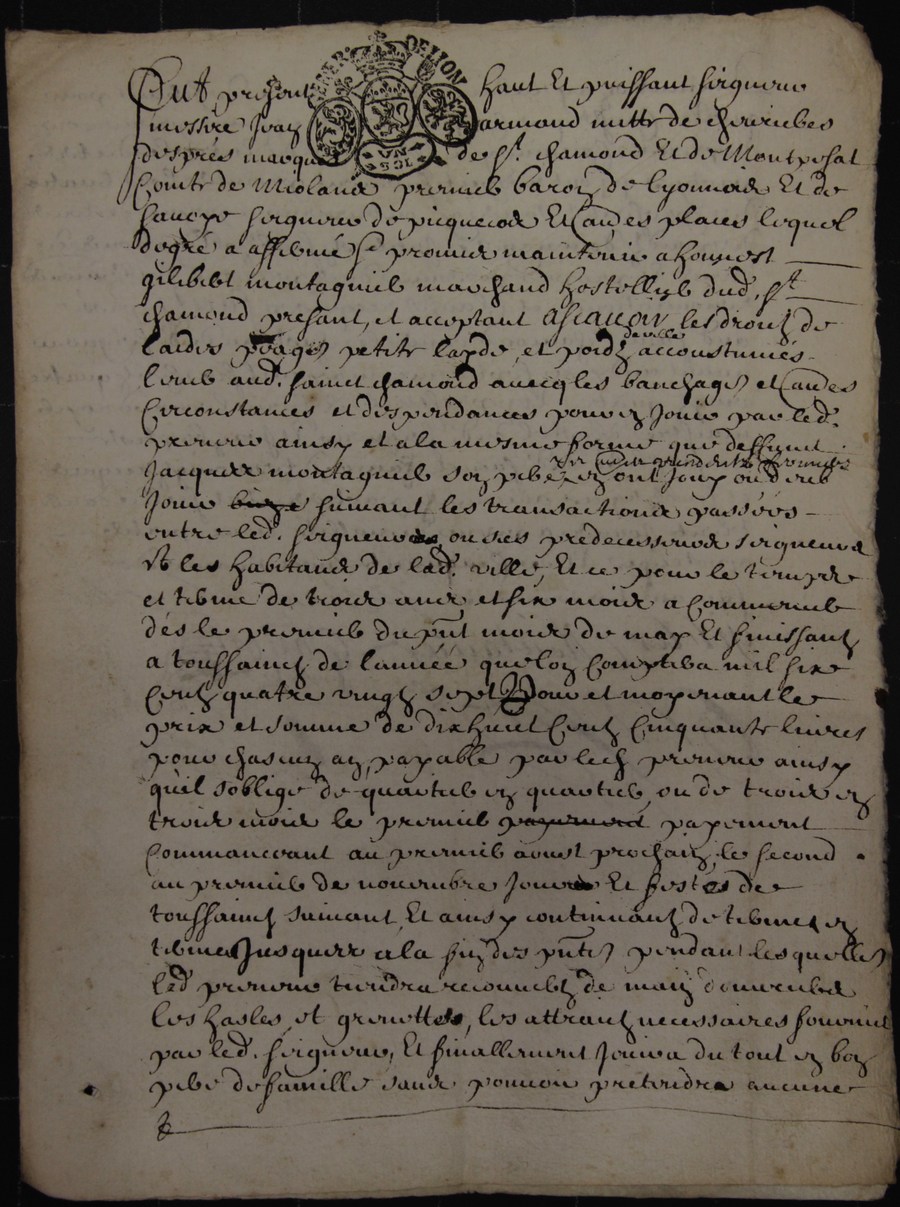 GENER DE LION
VN SOL
Fut présent haut Et puissant seigneur
messire Jean armand mitte de chevrieres
després marquis de St. chamond Et de Montpesat
Comte de Miolans premier baron de lyonnois Et de
savoye seigneur de picquecos Et autres places lequel
degré a affermé Et promis maintenir a honnest
gilibert montagnier marchand hostellier dud. St
chamond present, et acceptant Ascavoir les droitz de
laides peages petite layde, et poidz de ville accoustumés
lever aud. sainct chamond avecq les banchages et autres
Circonstances et despendances pour en Jouir par led.
preneur ainsy et a la mesme forme que deffunt
Jacques montagnier son pere en ont Jouy ou deub
Jouir suivant les transactions passées
entre led. seigneur ou ses predecesseurs seigneurs
Et les habitans de lad. ville, Et ce pour le temps
et terme de trois ans et six mois a Commencer
dés le premier du pnt mois de may Et finissant
a toussainctz de l'année que lon Comptera mil six
Centz quatre vingtz sept Pour et moyenant le
prix et somme de dix huict Centz Cinquante livres
pour chascun an, payable par led. preneur ainsy
qu'il s'oblige de quartier en quartier, ou de trois en
trois mois le premier payement payement
Commanceant au premier aoust prochain, le second
au premier de novembre Jour Et festes de
toussainctz suivant, Et ainsy continuant de terme en
terme Jusques a la fin des pntes pendant lesquelles
led preneur tiendra recouvertz de main d'oeuvre
les hasles et grenettes, les attraitz necessaires fournis
par led. seigneur, Et finallement Jouira du tout en bon
pere de famille sans pouvoir pretendre aucune